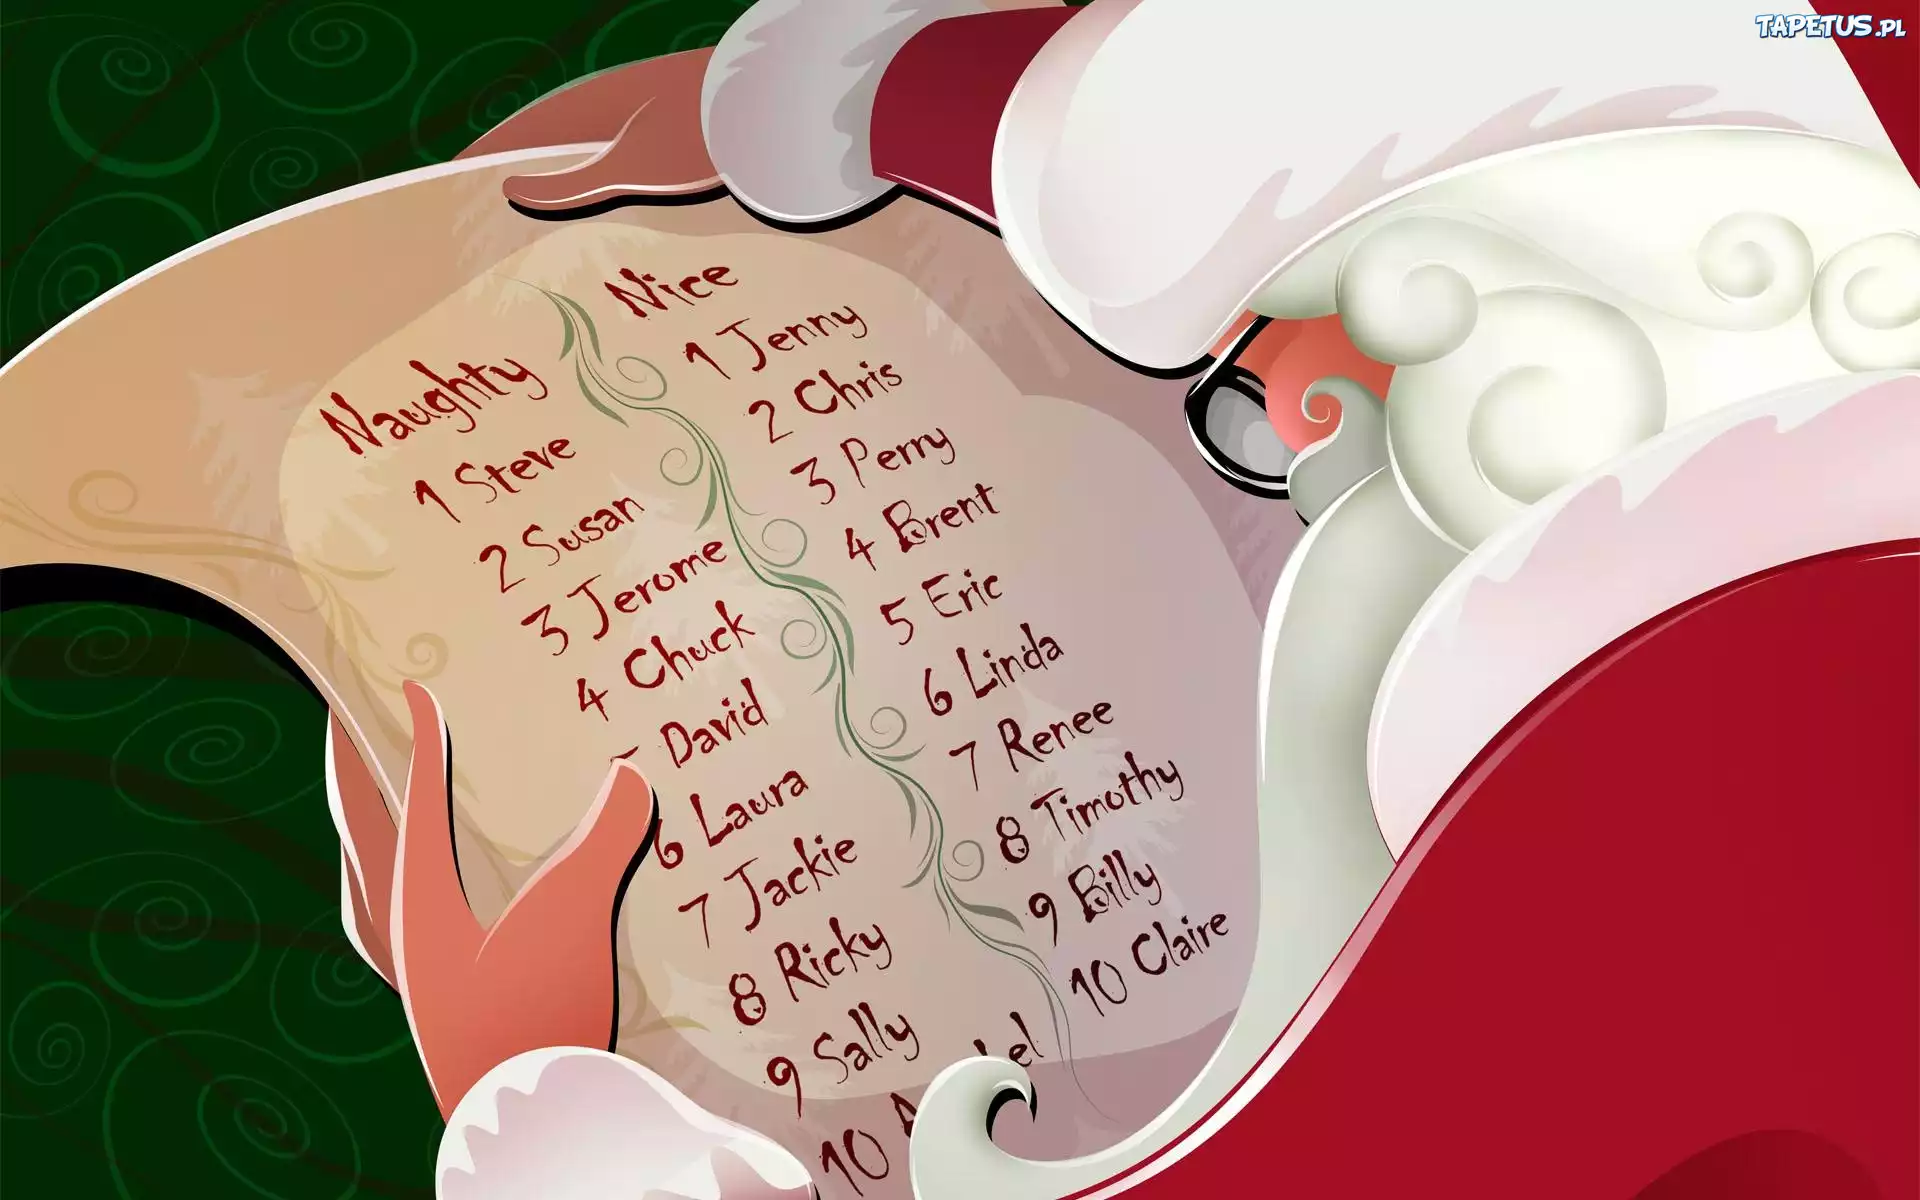 TAPETUS.PL
Naughty
1 Steve
2 Susan
3 Jerome
4 Chuck
David
6 Laura
7 Jackie
8 Ricky
9 Sally
10
Nice
1 Jenny
2 Chris
3 Perry
4 Brent
5 Eric
6 Linda
7 Renee
8 Timothy
9 Billy
10 Claire